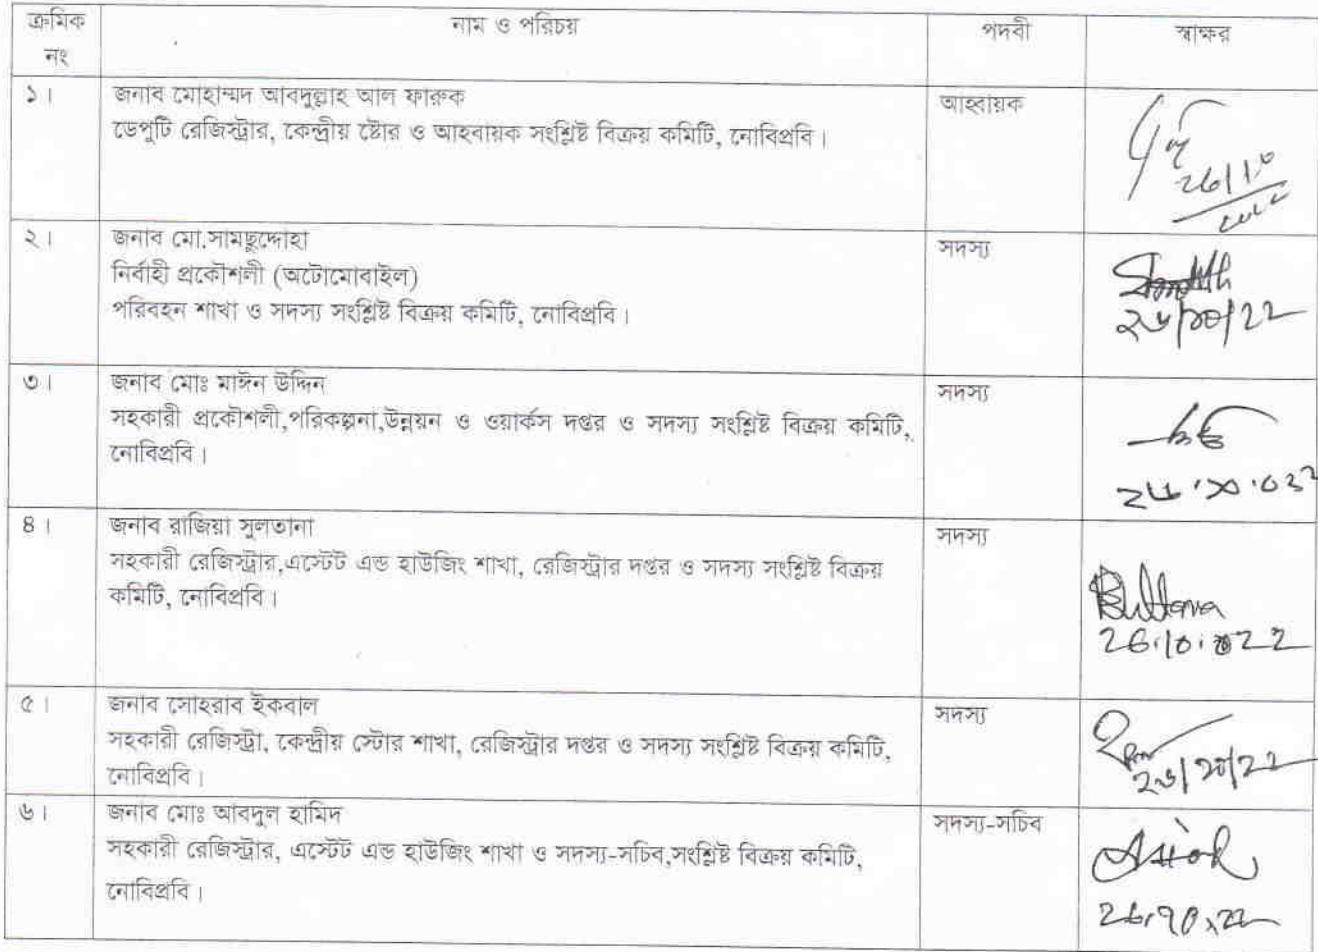 ক্রমিক নং নাম ও পরিচয় পদবী স্বাক্ষর
১। জনাব মোহাম্মদ আবদুল্লাহ আল ফারুক আহবায়ক
ডেপুটি রেজিস্ট্রার, কেন্দ্রীয় ষ্টোর ও আহবায়ক সংশ্লিষ্ট বিক্রয় কমিটি, নোবিপ্রবি।
২। জনাব মো.সামছুদ্দোহা সদস্য
নির্বাহী প্রকৌশলী (অটোমোবাইল)
পরিবহন শাখা ও সদস্য সংশ্লিষ্ট বিক্রয় কমিটি, নোবিপ্রবি।
২৬/১০/২২
৩। জনাব মোঃ মাঈন উদ্দিন সদস্য
সহকারী প্রকৌশলী,পরিকল্পনা,উন্নয়ন ও ওয়ার্কস দপ্তর ও সদস্য সংশ্লিষ্ট বিক্রয় কমিটি,
নোবিপ্রবি।
৪। জনাব রাজিয়া সুলতানা সদস্য
সহকারী রেজিস্ট্রার,এস্টেট এন্ড হাউজিং শাখা, রেজিস্ট্রার দপ্তর ও সদস্য সংশ্লিষ্ট বিক্রয়
কমিটি, নোবিপ্রবি।
৫। জনাব সোহরাব ইকবাল সদস্য
সহকারী রেজিস্ট্রা, কেন্দ্রীয় স্টোর শাখা, রেজিস্ট্রার দপ্তর ও সদস্য সংশ্লিষ্ট বিক্রয় কমিটি,
নোবিপ্রবি।
২৬/১০/২২
৬। জনাব মোঃ আবদুল হামিদ সদস্য-সচিব
সহকারী রেজিস্ট্রার, এস্টেট এন্ড হাউজিং শাখা ও সদস্য-সচিব,সংশ্লিষ্ট বিক্রয় কমিটি,
নোবিপ্রবি।